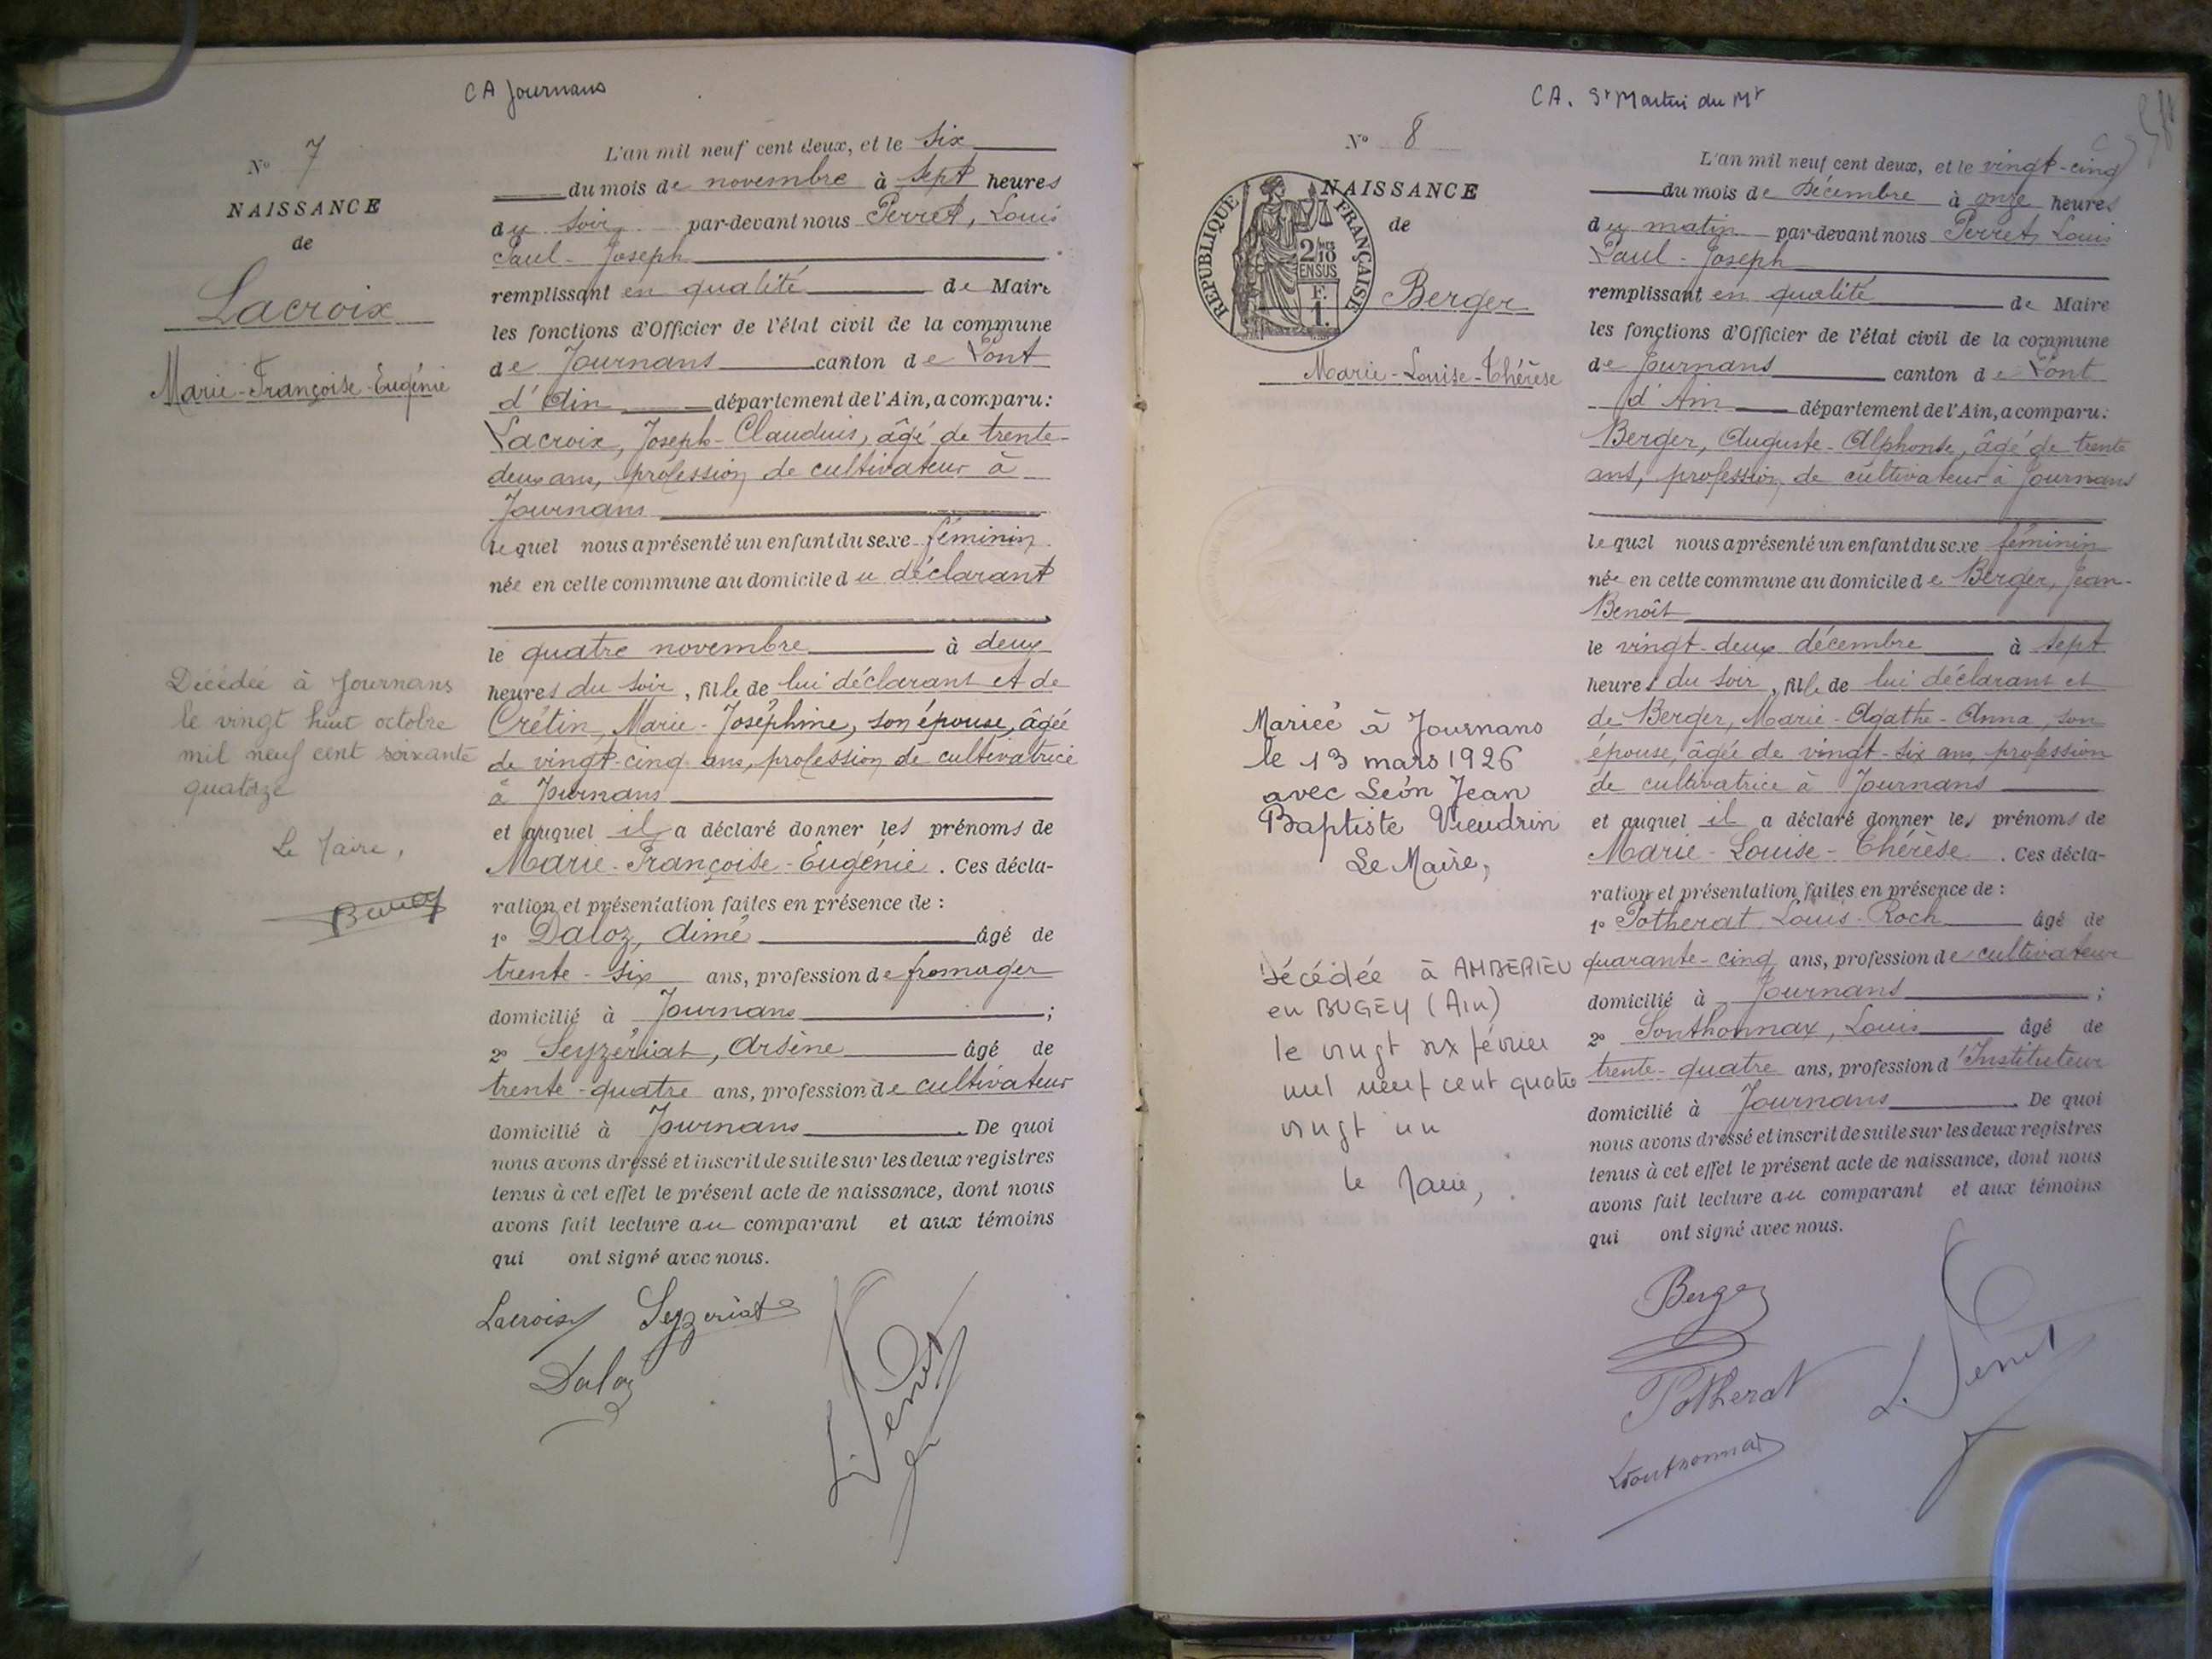 CA Journans
N° 7
NAISSANCE
de
Lacroix
Marie-Françoise-Eugénie
Décédée à Journans
le vingt huit octobre
mil neuf cent soixante
quatorze
Le Maire,
L'an mil neuf cent deux, et le six
du mois de novembre à sept heures
du soir par-devant nous Perret, Louis
Paul-Joseph
remplissant en qualité de Maire
les fonctions d'Officier de l'état civil de la commune
de Journans canton de Pont
d'Ain département de l'Ain, a comparu:
Lacroix, Joseph-Claudius, âgé de trente-
deux ans, profession de cultivateur à
Journans
lequel nous a présenté un enfant du sexe féminin
née en cette commune au domicile du déclarant
le quatre novembre à deux
heures du soir, fille de lui déclarant et de
Crétin, Marie-Joséphine, son épouse, âgée
de vingt-cinq ans, profession de cultivatrice
à Journans
et auquel il a déclaré donner les prénoms de
Marie-Françoise-Eugénie. Ces décla-
ration et présentation faites en présence de :
1° Daloz, Aimé âgé de
trente-six ans, profession de fromager
domicilié à Journans ;
2° Seyzériat, Arsène âgé de
trente-quatre ans, profession de cultivateur
domicilié à Journans. De quoi
nous avons dressé et inscrit de suite sur les deux registres
tenus à cet effet le présent acte de naissance, dont nous
avons fait lecture au comparant et aux témoins
qui ont signé avec nous.
Lacroix Seyzeriat
Daloz
L. Perret
CA. St Martin du Mt
N° 8
NAISSANCE
de
REPUBLIQUE FRANÇAISE
2/10
EN SUS
F.
1.
Berger
Marie-Louise-Thérèse
Mariée à Journans
le 13 mars 1926
avec Léon Jean
Baptiste Vieudrin
Le Maire,
Décédée à AMBERIEU
en BUGEY (Ain)
le vingt six février
mil neuf cent quatre
vingt un
le Maire,
L'an mil neuf cent deux, et le vingt-cinq
du mois de Décembre à onze heures
du matin par-devant nous Perret, Louis
Paul-Joseph
remplissant en qualité de Maire
les fonctions d'Officier de l'état civil de la commune
de Journans canton de Pont
d'Ain département de l'Ain, a comparu:
Berger, Auguste-Alphonse, âgé de trente
ans, profession de cultivateur à Journans
lequel nous a présenté un enfant du sexe féminin
née en cette commune au domicile de Berger, Jean-
Benoît
le vingt-deux décembre à sept
heures du soir, fille de lui déclarant et
de Berger, Marie-Agathe-Anna, son
épouse, âgée de vingt-six ans, profession
de cultivatrice à Journans
et auquel il a déclaré donner les prénoms de
Marie-Louise-Thérèse. Ces décla-
ration et présentation faites en présence de :
1° Potherat, Louis-Roch âgé de
quarante-cinq ans, profession de cultivateur
domicilié à Journans ;
2° Sonthonnax, Louis âgé de
trente-quatre ans, profession d'Instituteur
domicilié à Journans. De quoi
nous avons dressé et inscrit de suite sur les deux registres
tenus à cet effet le présent acte de naissance, dont nous
avons fait lecture au comparant et aux témoins
qui ont signé avec nous.
Berger
Potherat
L. Perret
Sonthonnax